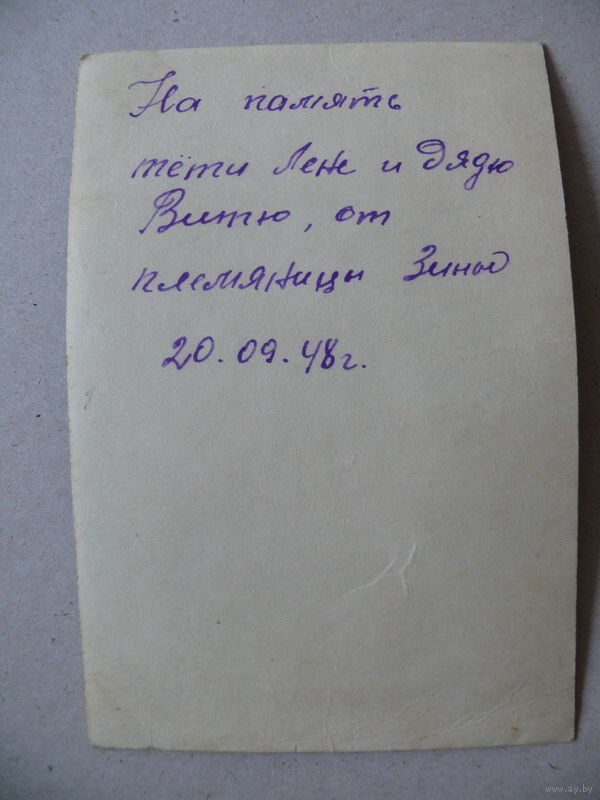 На память
тёти Лене и дядю
Витю, от
племяницы Зины
20.09.48г.
www.ay.by